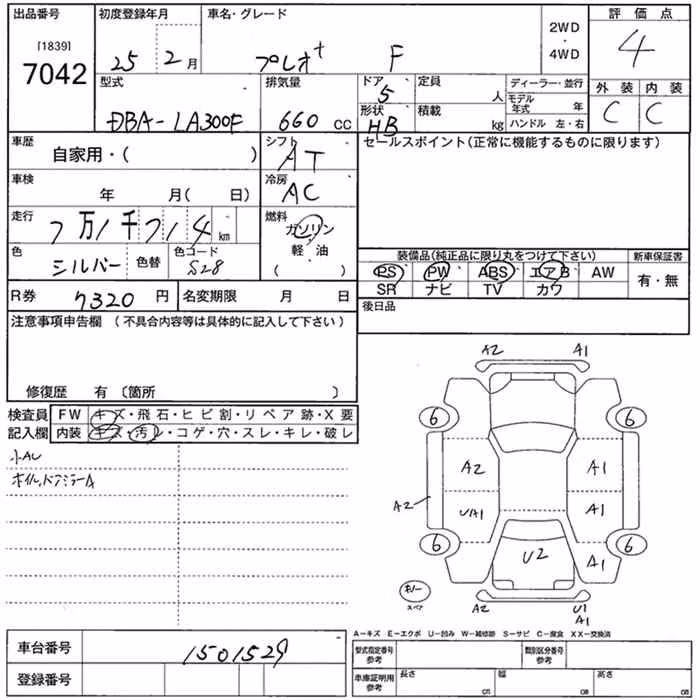 出品番号 初度登録年月 車名・グレード 2WD・4WD 評価点
[1839]
7042 25年 2月 プレオ+ F 4
型式 排気量 ドア 5 定員 人 ディーラー・並行 外装 内装
DBA-LA300F 660cc 形状 HB 積載 kg モデル年式 年 C C
ハンドル 左・右
車歴 自家用・( ) シフト AT セールスポイント(正常に機能するものに限ります)
車検 年 月( 日) 冷房 AC
走行 7万1千714km 燃料 ガソリン
軽・油
( )
色 シルバー 色替 色コード S28 装備品(純正品に限り丸をつけて下さい) 新車保証書
PS PW ABS エアB AW 有・無
R券 7320円 名変期限 月 日 SR ナビ TV カワ
後日品
注意事項申告欄 (不具合内容等は具体的に記入して下さい)
修復歴 有 〔箇所 〕
検査員 FW キズ・飛石・ヒビ割・リペア跡・X要
記入欄 内装 キズ・汚レ・コゲ・穴・スレ・キレ・破レ
小AU
ホイル、ドアミラーA
A2 A1
6 6
A2 A1
A2 UA1 A1
6 6
U2 A1
スペア
A2 U1
A1
A-キズ E-エクボ U-凹み W-補修跡 S-サビ C-腐食 XX-交換済
車台番号 1501529 型式指定番号 参考 類別区分番号 参考
登録番号 車庫証明用 参考 長さ cm 幅 cm 高さ cm